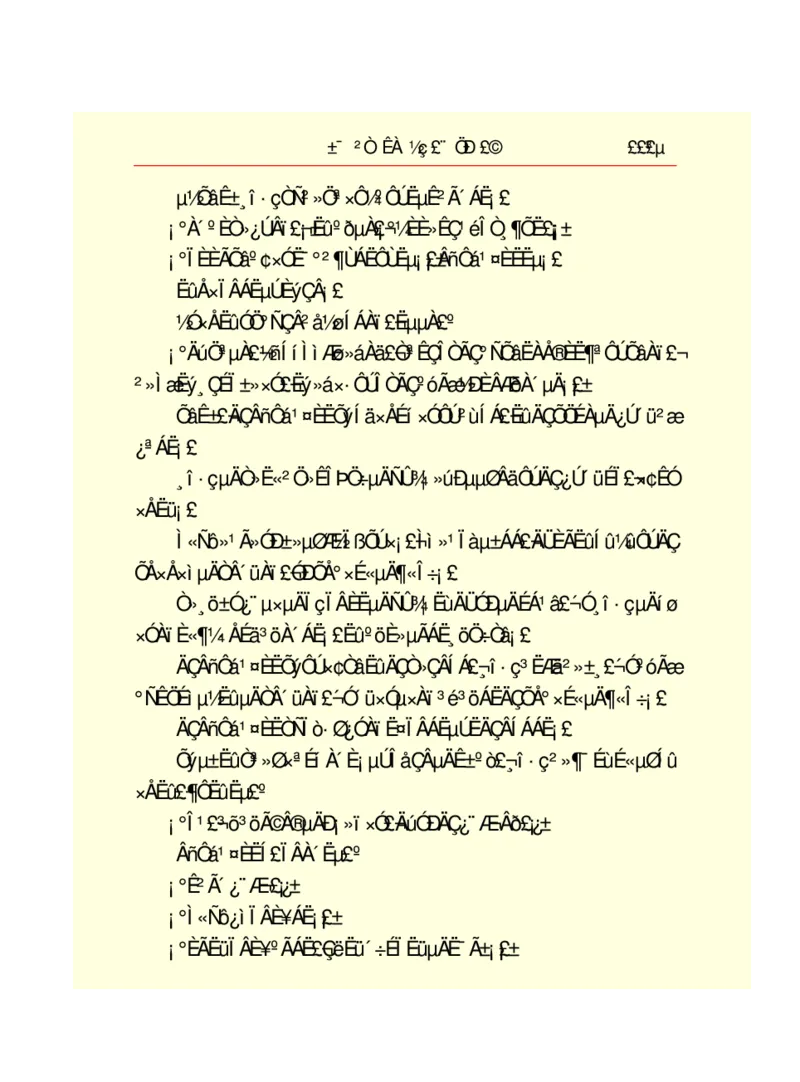 ±¯ ²Ò ÊÀ ½ç £¨ ÖÐ £© £££µ
µ½ÕâÊ±¸î·çÒÑ²»Öª×Ô¼ºÔÚËµÊ²Ã´ÁË¡£
¡°À´ºÈÒ»¿ÚÂï£¡¡±ËûºðµÀ£¬¡°¼ÈÈ»ÊÇ¹éÎÒ¸¶ÕË£¡¡±
¡°ÏÈÈÃÕâº¢×ÓË¯°²¶ÙÁËÔÙËµ¡£¡±ÂñÔá¹¤ÈËËµ¡£
ËûÅ×ÏÂÁËµÚÈýÇÂ¡£
½Ó×ÅËûÓÖ°ÑÇÂ²å½øÍÁÀï£¬ËµµÀ£º
¡°ÄúÖªµÀ£¬½ñÍíÌìÆø»áÀä£¬ÒªÊÇÎÒÃÇ°ÑÕâËÀÅ®ÈË¶ªÔÚÕâÀï£¬
²»Ìæ±ðËý¸ÇÉÏ±»×Ó£¬Ëý»á×·ÔÚÎÒÃÇºóÃæ½ÐÈÂÆðÀ´µÄ¡£¡±
ÕâÊ±£¬ÄÇÂñÔá¹¤ÈËÕýÍä×ÅÉí×ÓÔÚ²ùÍÁ£¬ËûÄÇÕÖÉÀµÄ¿Ú´ü²æ
¿ªÁË¡£
¸î·çµÄÒ»Ë«²Ö»ÊÎÞÖ÷µÄÑÛ¾¦»úÐµµØÂäÔÚÄÇ¿Ú´üÉÏ£¬×¢ÊÓ
×ÅËü¡£
Ì«Ñô»¹Ã»ÓÐ±»µØÆ½ÏßÕÚ×¡£¬Ìì»¹Ïàµ±ÁÁ£¬ÄÜÈÃËûÍû¼ûÔÚÄÇ
ÕÅ×Å×ìµÄÒÂ´üÀï£¬ÓÐÕÅ°×É«µÄ¶«Î÷¡£
Ò»¸ö±Ó¿¨µ×µÄÏçÏÂÈËµÄÑÛ¾¦ËùÄÜÓÐµÄÉÁ¹â£¬Ó¸î·çµÄíø
×ÓÀïÈ«¶¼·ÅÉä³öÀ´ÁË¡£ËûºöÈ»µÃÁË¸öÖ÷Òâ¡£
ÄÇÂñÔá¹¤ÈËÕýÔÚ×¢ÒâËûÄÇÒ»ÇÂÍÁ£¬¸î·ç³ËÆä²»±¸£¬´ÓºóÃæ
°ÑÊÖÉìµ½ËûµÄÒÂ´üÀï£¬´Ó´ü×Óµ×Àï³é³öÁËÄÇÕÅ°×É«µÄ¶«Î÷¡£
ÄÇÂñÔá¹¤ÈËÒÑÏò·Ø¿ÓÀïË¤ÏÂÁËµÚËÄÇÂÍÁÁË¡£
Õýµ±ËûÒª»Ø×ªÉíÀ´È¡µÚÎåÇÂµÄÊ±ºò£¬¸î·ç²»¶¯ÉùÉ«µØÍû
×ÅËû£¬¶ÔËûËµ£º
¡°Î¹£¬³õ³öÃ©Â®µÄÐ¡»ï×Ó£¬ÄúÓÐÄÇ¿¨Æ¬Âð£¿¡±
ÂñÔá¹¤ÈËÍ£ÏÂÀ´Ëµ£º
¡°Ê²Ã´¿¨Æ¬£¿¡±
¡°Ì«Ñô¿ìÏÂÈ¥ÁË¡£¡±
¡°ÈÃËüÏÂÈ¥ºÃÁË£¬ÇëËü´÷ÉÏËüµÄË¯Ã±¡£¡±